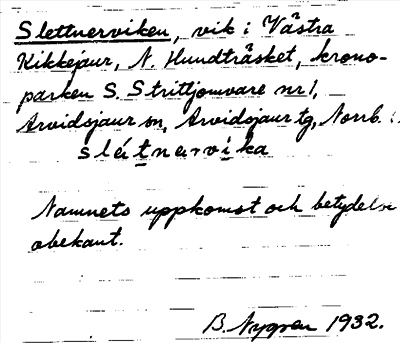 Slettnerviken, vik i Västra
Kikkejaur, N. Hundträsket, krono-
parken S. Strittjomvare nr 1,
Arvidsjaur sn, Arvidsjaur tg, Norrb. l.
slétner-vika
Namnets uppkomst och betydelse
obekant.
B. Nygren 1932.